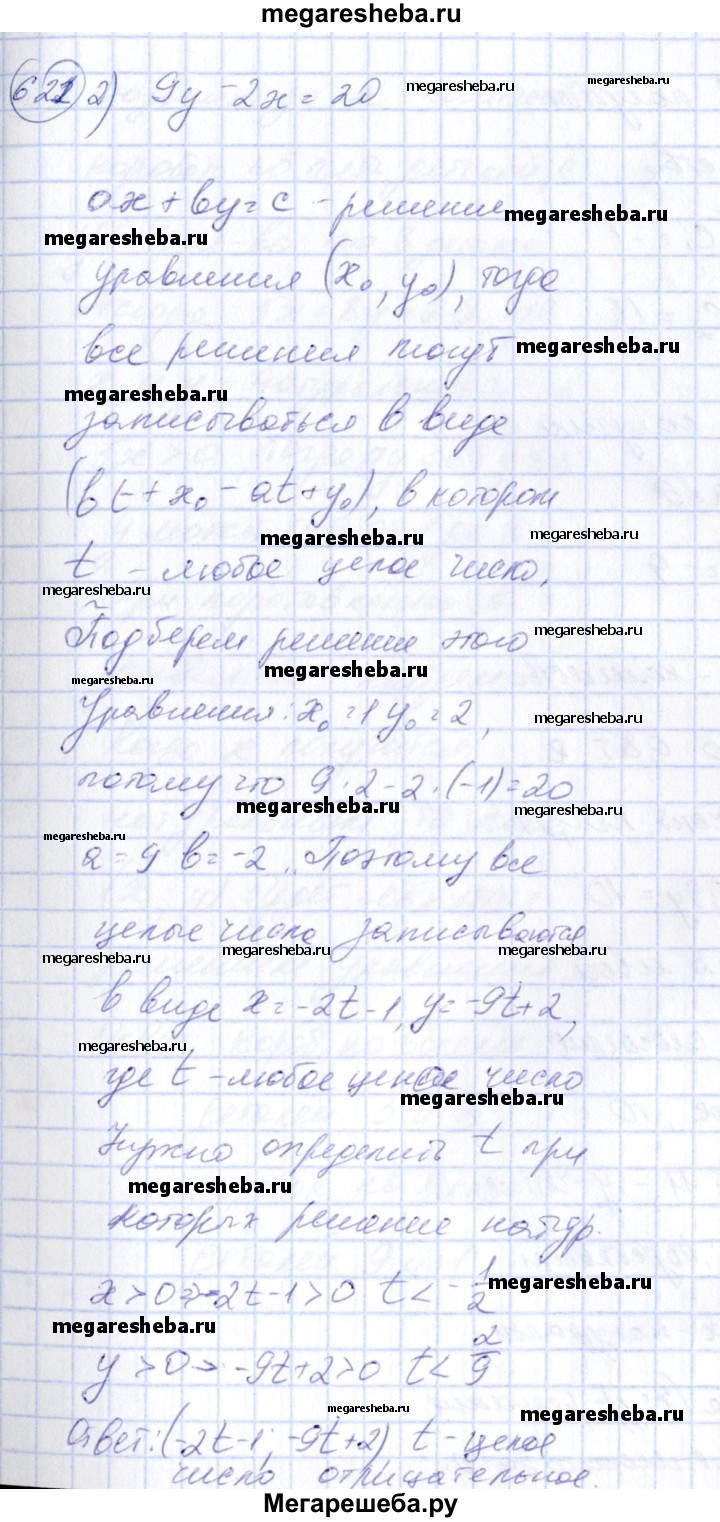 megaresheba.ru
621 2) 9y - 2x = 20 megaresheba.ru megaresheba.ru
ax + by = c - решение megaresheba.ru
megaresheba.ru
уравнения (x₀, y₀), тогда
все решения могут megaresheba.ru
megaresheba.ru
записываться в виде
(bt + x₀ - at + y₀), в котором
megaresheba.ru megaresheba.ru
t - любое целое число,
megaresheba.ru
Подберем решение этого megaresheba.ru
megaresheba.ru megaresheba.ru
Уравнения: x₀ = 1 y₀ = 2, megaresheba.ru
потому что 9 · 2 - 2 · (-1) = 20
megaresheba.ru megaresheba.ru
megaresheba.ru
a = 9 b = -2. Поэтому все
целые числа записываются
megaresheba.ru megaresheba.ru megaresheba.ru
в виде x = -2t - 1, y = -9t + 2,
megaresheba.ru
где t - любое целое число
megaresheba.ru
Нужно определить t при
megaresheba.ru
которых решение натур.
x > 0 => -2t - 1 > 0 t < - 1/2 megaresheba.ru
megaresheba.ru
y > 0 -> -9t + 2 > 0 t < 2/9
megaresheba.ru megaresheba.ru
Ответ: (-2t - 1; -9t + 2) t - целое
число отрицательное.
Мегарешеба.ру